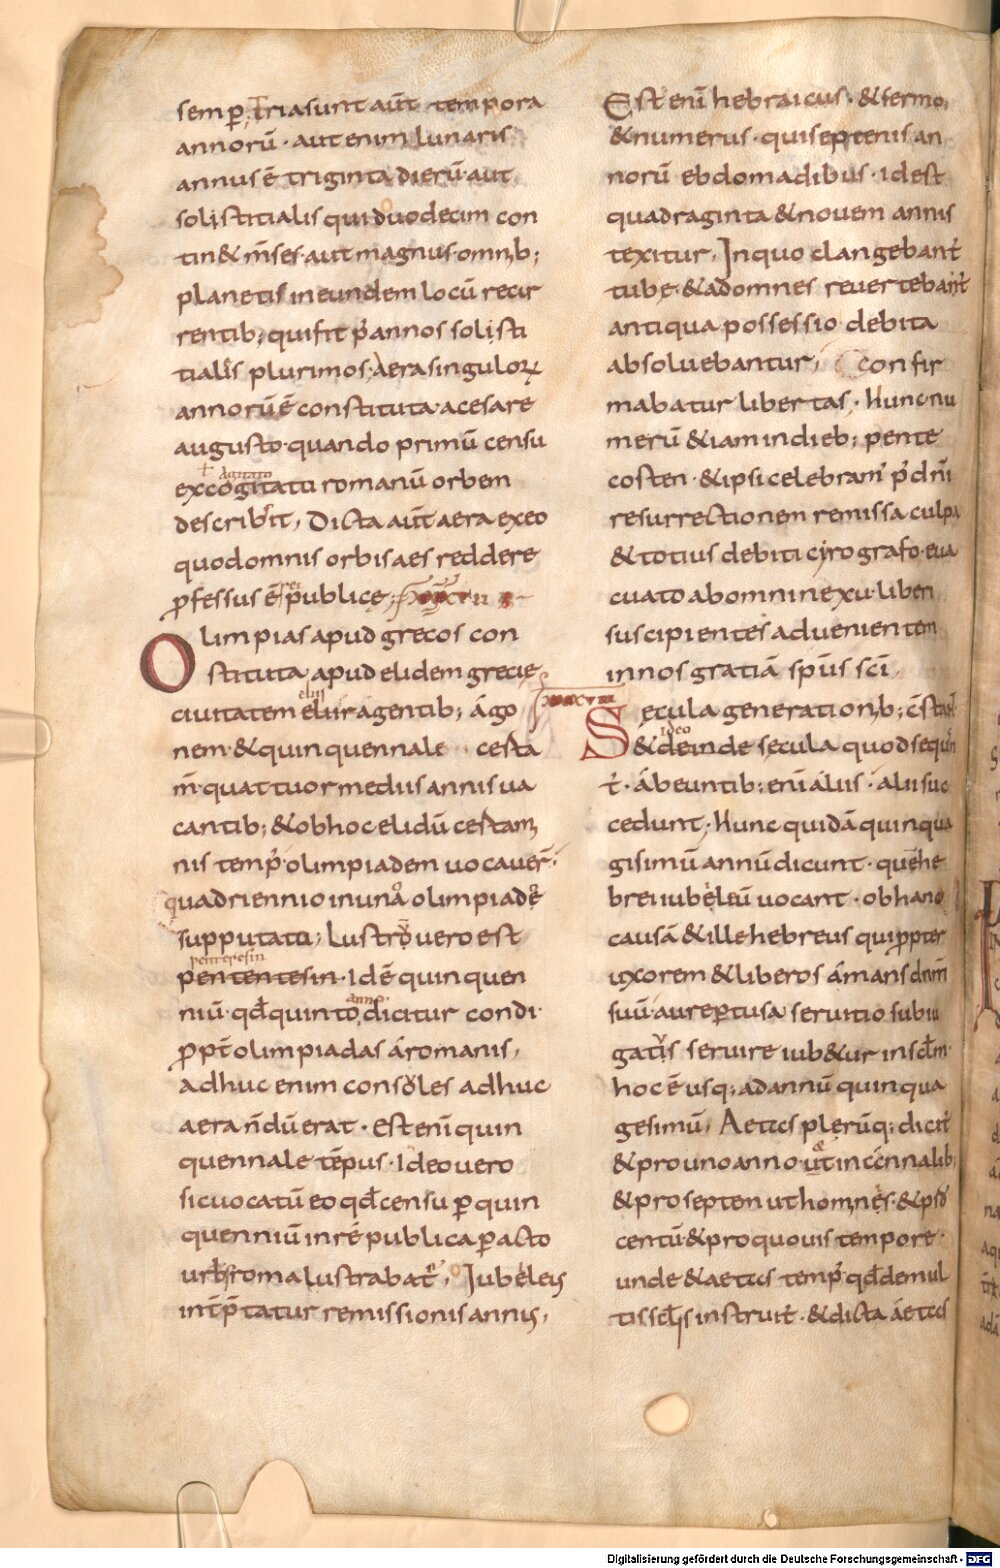 semꝑ, Tria sunt aut̄ tempora
annorū · aut enim lunaris
annus ē triginta dierū · aut
solistitialis qui duodecim con
tin& m̄ses · aut magnus · omnib;
planetis in eundem locū recur
rentib; qui fit p̄ annos solisti
tialis plurimos; Aera singuloꝝ
annorū ē constituta · a cesare
augusto · quando primū censu
ł agnato
excogitata romanū orbem
describsit, Dicta aut̄ aera ex eo
quod omnis orbis aes reddere
ꝓfessus ē rei publice;
Olimpias apud grecos con
stituta apud elidem grecie
eliis
ciuitatem eliir agentib; ágo
nem · & quinquennale cesta
m̄ · quattuor mediis annis ua
cantib; & ob hoc elidū cestam
nis temp̄ · olimpiadem uocauer̄ ·
quadriennio in una olimpiade
supputata; Lustrū uero est
penteresin
pententesin · Id ē quinquen
anno ·
niū · qd̄ quinto dicitur condi ·
ꝓpt̄ olimpiadas á romanis,
adhuc enim consoles adhuc
aera n̄dū erat · Est eni quin
quennale tēpus · Ideo uero
sic uocatū eo qd̄ censu ꝑ quin
quenniū in ré publica ꝑacto
urbs roma lustrabat̄, Iubeleus
int̄p̄tatur remissionis annus,
Est eni hebraicus · & sermo,
& numerus · qui septenis an
norū ebdomadibus · id est
quadraginta & nouem annis
texitur, In quo clangebant̄
tube · & ad omnes reuertebant̄
antiqua possessio debita
absoluebantur, Confir
mabatur libertas · Hunc nu
merū & iam in dieb; pente
costen · & ipsi celebram̄ p̄ dn̄i
resurrectionem remissa culpa
& totius debiti cyrografo · eua
cuato ab omni nexu · liberi
suscipientes aduenientem
in nos gratiā sp̄us sc̄i,
Secula generationib; c̄stant
ideo
& deinde secula quod sequn
t̄ · ábeuntib; eni áliis · alii suc
cedunt · Hunc quidā quinqua
gisimū annū dicunt · quē he
brei iubeleū uocant · ob hanc
causā & ille hebreus qui ꝓpter
uxorem & liberos ámans dn̄m
suū · aure ꝑtusa seruitio subiu
gatus seruire iub&ur in scl̄m
hoc ē usq; ad annū quinqua
gesimū, Aetas plerūq; dicit̄
& pro uno anno · ut in ánnalib;
& pro septem ut homines · & p̄
centū · & pro quouis tempore ·
unde & aetas temp̄ · qd̄ de mul
tis scl̄is instruit̄ · & dicta áetas